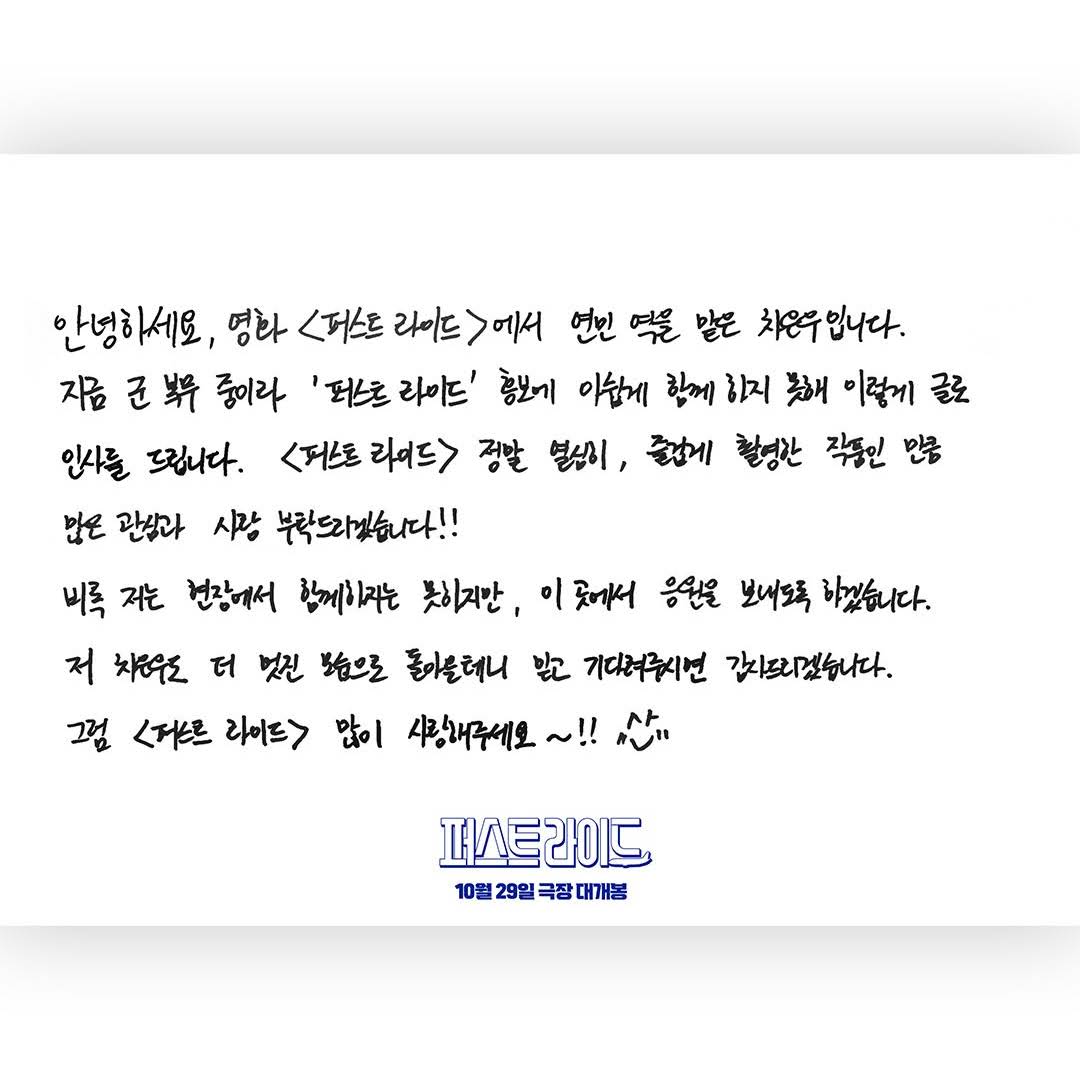 안녕하세요, 영화 <퍼스트 라이드>에서 연민 역을 맡은 차은우입니다.
지금 군 복무 중이라 '퍼스트 라이드' 홍보에 아쉽게 함께 하지 못해 이렇게 글로
인사를 드립니다. <퍼스트 라이드> 정말 열심히, 즐겁게 촬영한 작품인 만큼
많은 관심과 사랑 부탁드리겠습니다!!
비록 저는 현장에서 함께하지는 못하지만, 이 곳에서 응원을 보내도록 하겠습니다.
저 차은우도 더 멋진 모습으로 돌아올테니 믿고 기다려주시면 감사드리겠습니다.
그럼 <퍼스트 라이드> 많이 사랑해주세요~!! ^^
퍼스트 라이드
10월 29일 극장 대개봉